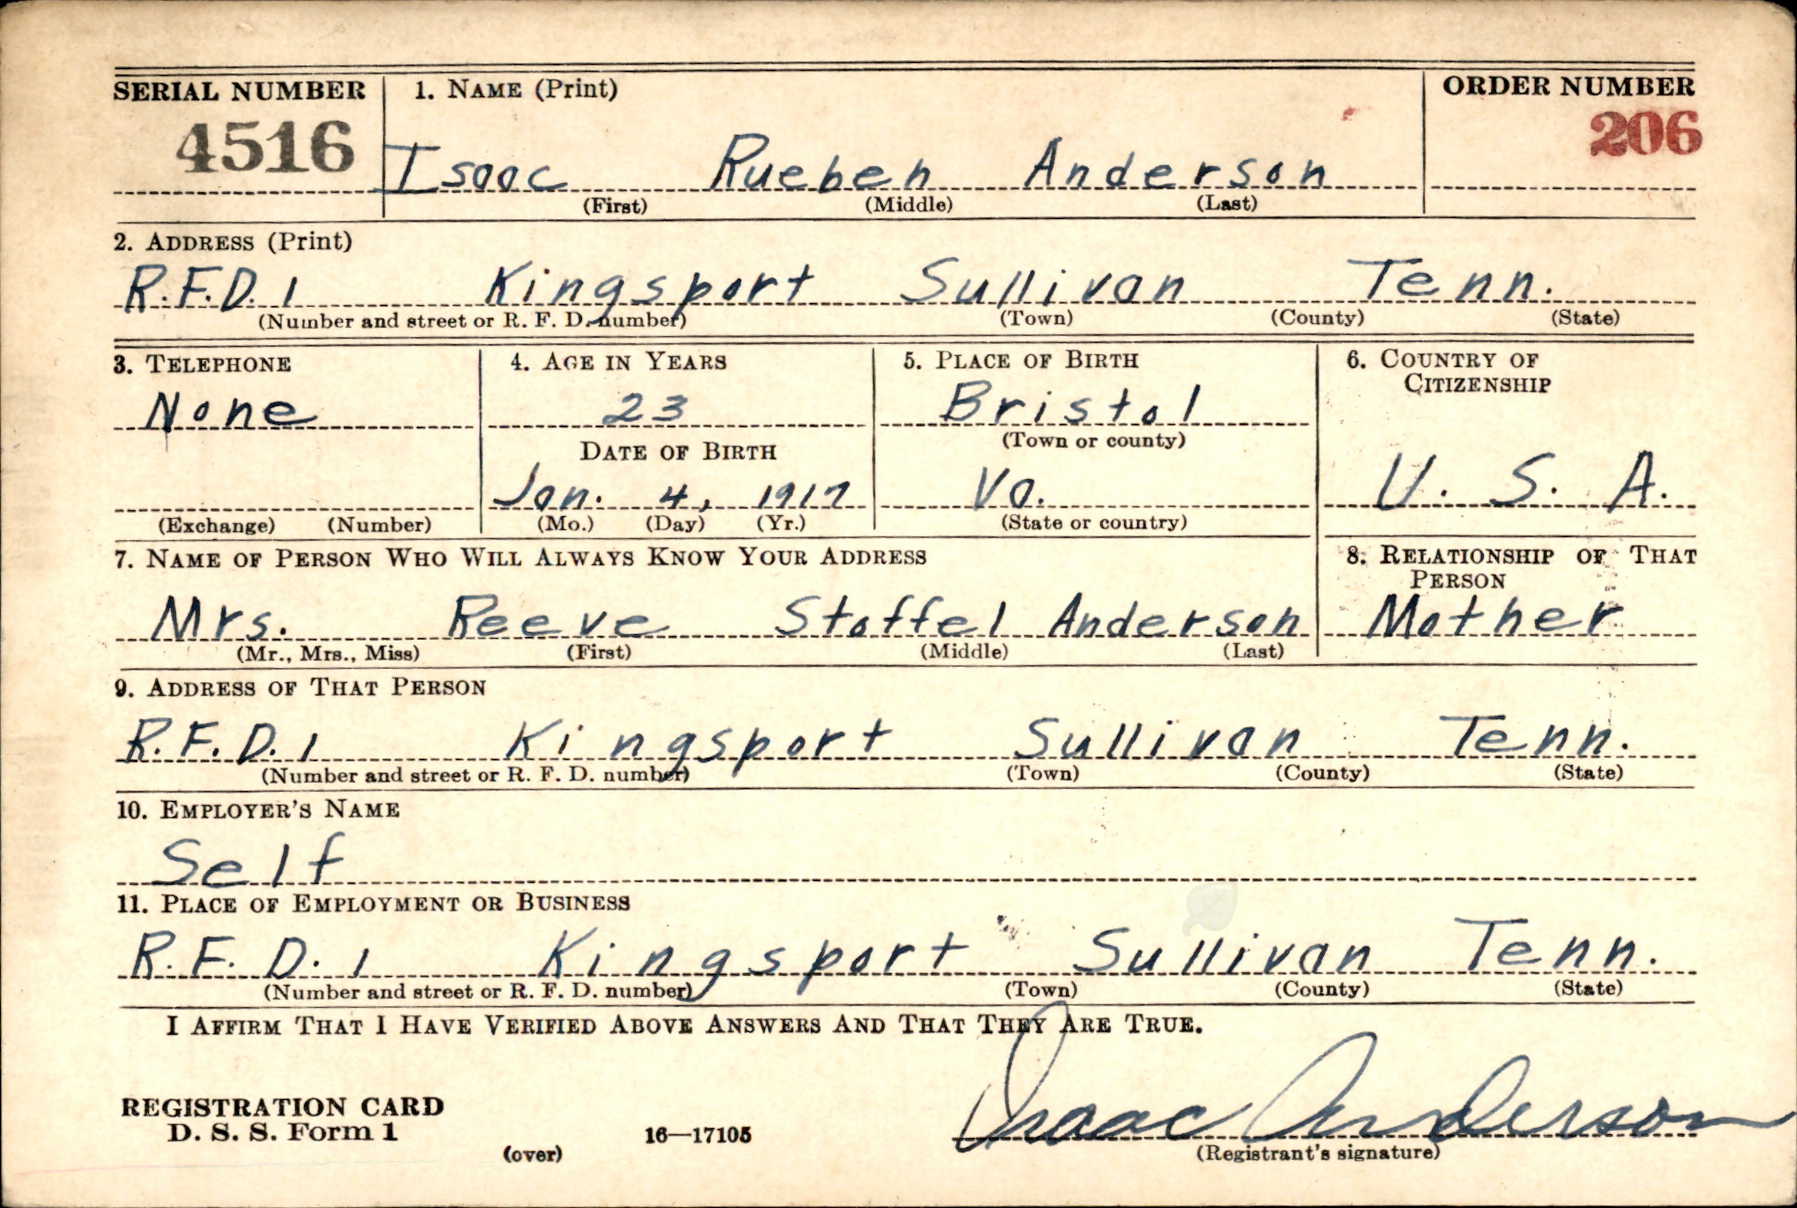 SERIAL NUMBER 1. NAME (Print) ORDER NUMBER
4516 Isaac Rueben Anderson 206
(First) (Middle) (Last)
2. ADDRESS (Print)
R.F.D. 1 Kingsport Sullivan Tenn.
(Number and street or R. F. D. number) (Town) (County) (State)
3. TELEPHONE 4. AGE IN YEARS 5. PLACE OF BIRTH 6. COUNTRY OF
CITIZENSHIP
None 23 Bristol
(Town or county)
DATE OF BIRTH
Jan. 4, 1917 Va. U. S. A.
(Exchange) (Number) (Mo.) (Day) (Yr.) (State or country)
7. NAME OF PERSON WHO WILL ALWAYS KNOW YOUR ADDRESS 8. RELATIONSHIP OF THAT
PERSON
Mrs. Reeve Stoffel Anderson Mother
(Mr., Mrs., Miss) (First) (Middle) (Last)
9. ADDRESS OF THAT PERSON
R.F.D. 1 Kingsport Sullivan Tenn.
(Number and street or R. F. D. number) (Town) (County) (State)
10. EMPLOYER'S NAME
Self
11. PLACE OF EMPLOYMENT OR BUSINESS
R.F.D. 1 Kingsport Sullivan Tenn.
(Number and street or R. F. D. number) (Town) (County) (State)
I AFFIRM THAT I HAVE VERIFIED ABOVE ANSWERS AND THAT THEY ARE TRUE.
REGISTRATION CARD
D. S. S. Form 1 Isaac Anderson
(over) 16—17105 (Registrant's signature)